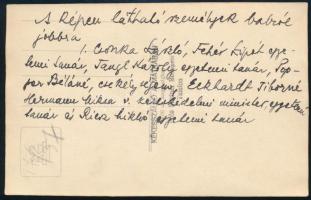 A képen látható személyek balról
jobbra
1. Csonka László, Fehér Lipót egye-
temi tanár, Tangl Károly egyetemi tanár, Pop-
per Béláné, csekélységem, Eckhardt Tiborné
Hermann Miksa v. kereskedelmi miniszter egyetemi
tanár és Riesz Miklós egyetemi tanár